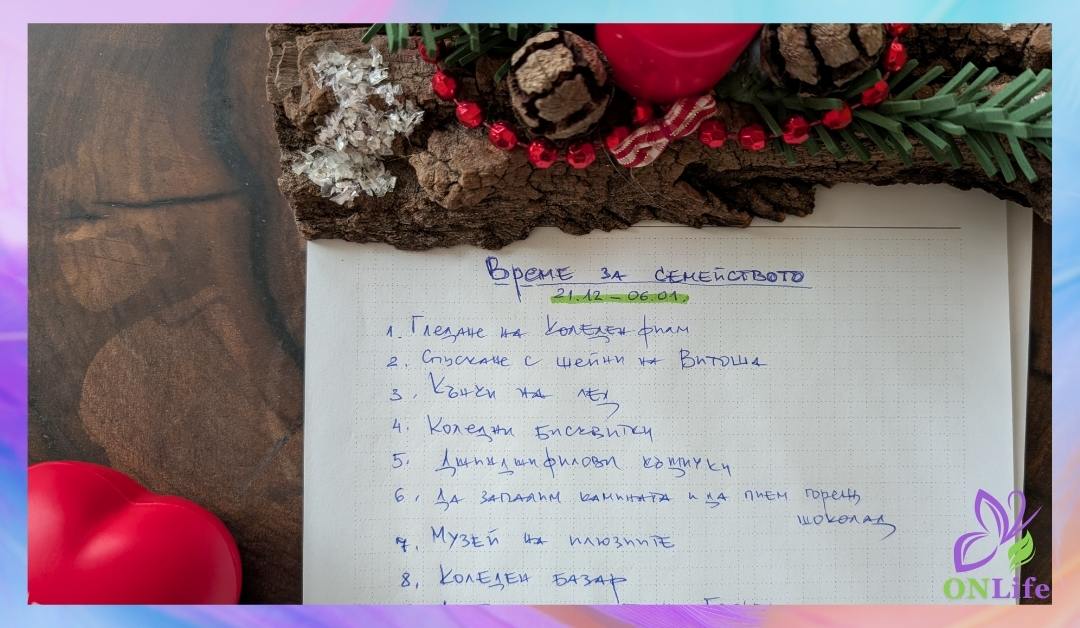 Време за семейството
21.12 – 06.01.
1. Гледане на Коледен филм
2. Спускане с шейни на Витоша
3. Кънки на лед
4. Коледни бисквитки
5. Джинджифилови къщички
6. Да запалим камината и да пием горещ
шоколад
7. Музей на илюзиите
8. Коледен базар
ONLife